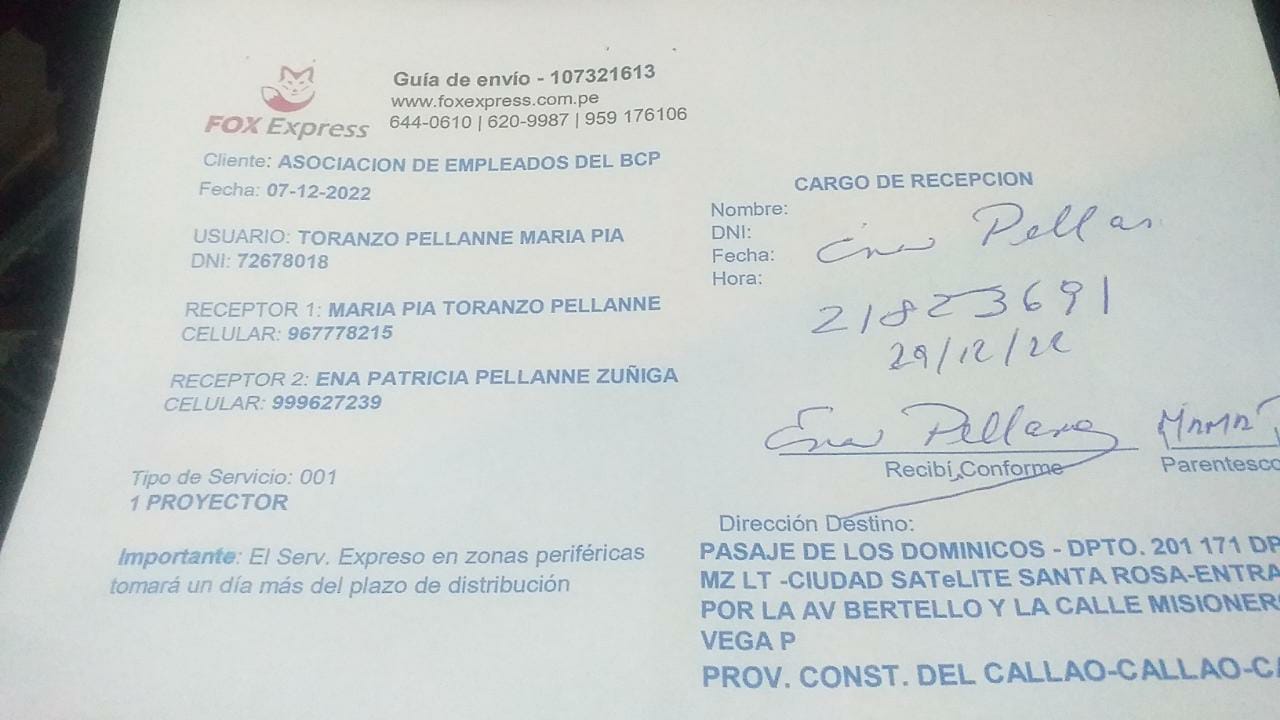 FOX Express
Guía de envío - 107321613
www.foxexpress.com.pe
644-0610 | 620-9987 | 959 176106
Cliente: ASOCIACION DE EMPLEADOS DEL BCP
Fecha: 07-12-2022
USUARIO: TORANZO PELLANNE MARIA PIA
DNI: 72678018
RECEPTOR 1: MARIA PIA TORANZO PELLANNE
CELULAR: 967778215
RECEPTOR 2: ENA PATRICIA PELLANNE ZUÑIGA
CELULAR: 999627239
Tipo de Servicio: 001
1 PROYECTOR
Importante: El Serv. Expreso en zonas periféricas
tomará un día más del plazo de distribución
CARGO DE RECEPCION
Nombre:
DNI:
Fecha:
Hora:
Ena Pellan
21823691
29/12/22
Ena Pellane MAMA
Recibí Conforme Parentesco
Dirección Destino:
PASAJE DE LOS DOMINICOS - DPTO. 201 171 DP
MZ LT -CIUDAD SATeLITE SANTA ROSA-ENTRA
POR LA AV BERTELLO Y LA CALLE MISIONER
VEGA P
PROV. CONST. DEL CALLAO-CALLAO-CA